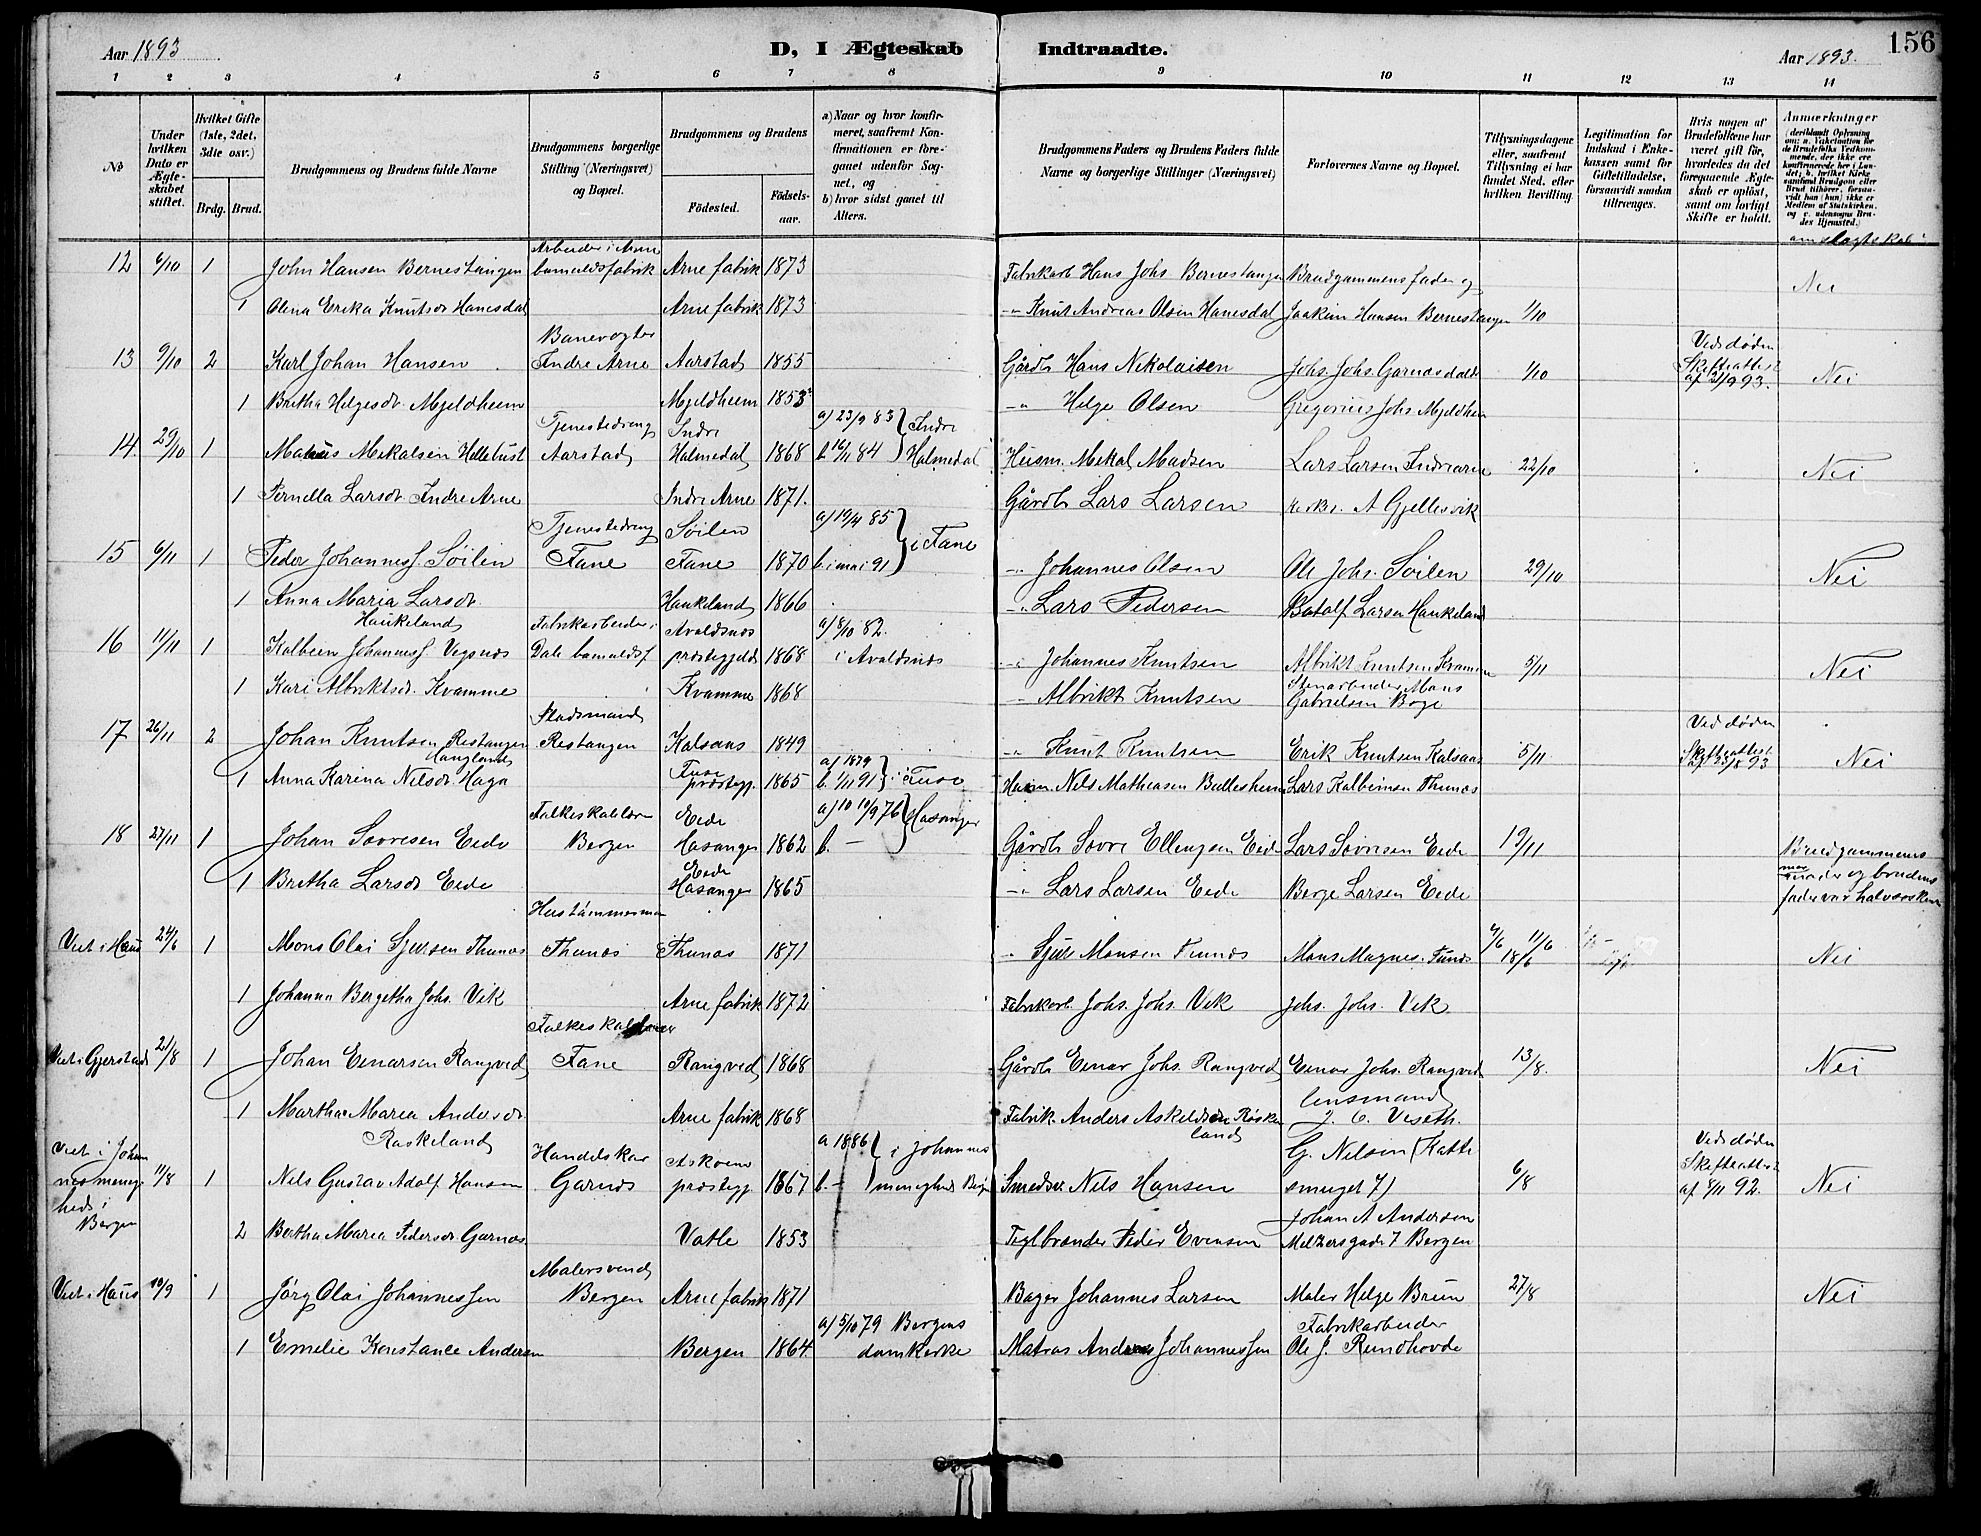 Aar 1893
D, I Ægteskab Indtraadte.
Aar 1893.
156
1 2 3 4 5 6 7 8 9 10 11 12 13 14
No
Under hvilken Dato er Ægteskabet stiftet.
Hvilket Gifte (1ste, 2det, 3die osv.)
Brdg. Brud.
Brudgommens og Brudens fulde Navne
Brudgommens borgerlige Stilling (Næringsvei) og Bopæl.
Brudgommens og Brudens
Fødested. Fødselsaar.
a) Naar og hvor konfirmeret, saafremt Konfirmationen er foregaaet udenfor Sognet, og
b) hvor sidst gaaet til Alters.
Brudgommens Faders og Brudens Faders fulde Navne og borgerlige Stillinger (Næringsvei)
Forlovernes Navne og Bopæl.
Tillysningsdagene eller, saafremt Tillysning ei har fundet Sted, efter hvilken Bevilling.
Legitimation for Indskud i Enkekassen samt for Giftetilladelse, forsaavidt saadan tiltrænges.
Hvis nogen af Brudefolkene har været gift før, hvorledes da det foregaaende Ægteskab er opløst, samt om lovligt Skifte er holdt.
Anmærkninger
om slægtskab
12 6/10 1 John Hansen Bernestangen Arbeider i Arne bomuldsfabrik Arne fabrik 1873 Fabrikarb Hans Johs Bernestangen Brudgommens fader og Nei
1 Olena Erika Knutsdr Hanesdal Arne fabrik 1873 -"- Knut Andreas Olsen Hanesdal Joakim Hansen Bernestangen 1/10
13 9/10 2 Karl Johan Hansen Banevogter Indre Arne Aarstad 1855 Gårdb Hans Nikolaisen Johs. Johs. Garnæsdalen 1/10 Ved døden Skifteattest af 21/9 93. Nei
1 Britha Helgesdr. Mjeldheim Mjeldheim 1853 -"- Helge Olsen Gregorius Johs Mjeldheim
14 29/10 1 Matæus Mikalsen Hellebust Tjenestedreng Aarstad Indre Holmedal 1868 a) 23/9 83 b 16/11 84 Indre Holmedal Husm. Mikal Madsen Lars Larsen Indrearne 22/10 Nei
1 Pernilla Larsdr Indre Arne Indre Arne 1871. Gårdb Lars Larsen A Gjellesvik
15 6/11 1 Peder Johanness. Søilen Tjenestedreng Fane Søilen Fane 1870 a) 19/4 85 b. i mai 91 i Fane -"- Johannes Olsen Ole Johs. Søilen 29/10 Nei
1 Anna Maria Larsdr. Haukeland Haukeland 1866 -"- Lars Pedersen Botolf Larsen Haukeland
16 11/11 1 Kolbein Johanness Vignæs Fabrikarbeider i Dale bomuldsf Avaldsnæs præstegjeld 1868 a) 8/10 82. i Avaldsnæs -"- Johannes Knutsen Albrikt Knutsen Kvamme 5/11 Nei
1 Kari Albriktsdr. Kvamme Kvamme 1868 -"- Albrikt Knutsen Stenarbeider Mons Gabrielsen Boge
17 26/11 2 Johan Knutsen Restangen Haugland Pladsmand Restangen Kalsaas 1849 -"- Knut Knutsen Erik Knutsen Kalsaas 5/11 Ved døden Skifteattest af 23/8 93 Nei
1 Anna Karina Nilsdr Haga Fuse præstegj. 1865 a) 1879 b. 1/11 91 i Fuse Husm. Nils Mathiasen Lars Kolbeinsen Thunæs
18 27/11 1 Johan Sjovresen Eide Folkeskolelærer Bergen Eide Hosanger 1862 a) 10/9 76 b. - Hosanger Gårdb Sovre Ellingsen Eide Lars Sovresen Eide 19/11 Brudgommens moder og brudens fader var halvsøskende
1 Britha Larsdr Eide Eide Hosanger 1865 -"- Lars Larsen Eide Berge Larsen Eide
Viet i Haus 24/6 1 Mons Olai Sjursen Thunæs Hustømmermand Thunæs Thunæs 1871 -"- Sjur Monsen Tunæs Mons Magnes. Tunæs 4/6 11/6 18/6 Nei
1 Johanna Bergetha Johs. Vik Arne fabrik 1872 Fabrikarb. Johs. Johs. Vik Johs. Johs. Vik
Viet i Gjerstad 21/8 1 Johan Einarsen Rongved Folkeskolelærer Fane Rongved 1868 Gårdb Einar Johs. Rongved Einar Johs. Rongved 13/8. Nei
1 Martha Maria Andersdr. Røskeland Arne fabrik 1868 Fabrik. Anders Askeldsen Røskeland lensmand J. O. Viseth.
Viet i Johannesmenighed i Bergen 11/8 1 Nils Gustav Adolf Hansen Handelskar Garnæs Askøens præstegj. 1867 a 1886 b.- i Johannes menighed Berg Smedsv Nils Hansen G. Nilsen (Kattesmuget 7) 6/8 Ved døden Skifteattest af 8/11 92. Nei
2 Bertha Maria Pedersdr Garnæs. Vatle 1853 Teglbrænder Peder Evensen Johan A Andersen Meltzersgade 7 Bergen
Viet i Haus 10/9 1 Jørg Olai Johannessen Malersvend Bergen Arne fabrik 1871 Bager Johannes Larsen Maler Helge Brun 27/8 Nei
1 Emelie Konstance Andersen Bergen 1864 a) 5/10 79 Bergens domkirke Matros Andreas Johannessen Fabrikarbeider Ole J. Rundhovde